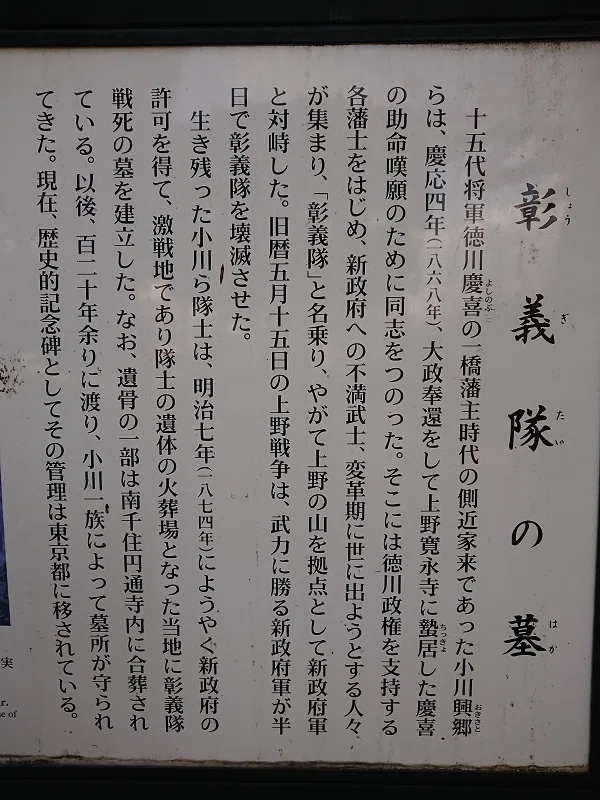 彰義隊の墓
しょうぎたいはか
十五代将軍徳川慶喜の一橋藩主時代の側近家来であった小川興郷
よしのぶ
おきさと
らは、慶応四年(一八六八年)、大政奉還をして上野寛永寺に蟄居した慶喜
ちっきょ
の助命嘆願のために同志をつのった。そこには徳川政権を支持する
各藩士をはじめ、新政府への不満武士、変革期に世に出ようとする人々
が集まり、「彰義隊」と名乗り、やがて上野の山を拠点として新政府軍
と対峙した。旧暦五月十五日の上野戦争は、武力に勝る新政府軍が半
日で彰義隊を壊滅させた。
生き残った小川ら隊士は、明治七年(一八七四年)にようやく新政府の
許可を得て、激戦地であり隊士の遺体の火葬場となった当地に彰義隊
戦死の墓を建立した。なお、遺骨の一部は南千住円通寺内に合葬され
ている。以後、百二十年余りに渡り、小川一族によって墓所が守られ
てきた。現在、歴史的記念碑としてその管理は東京都に移されている。
実
e of